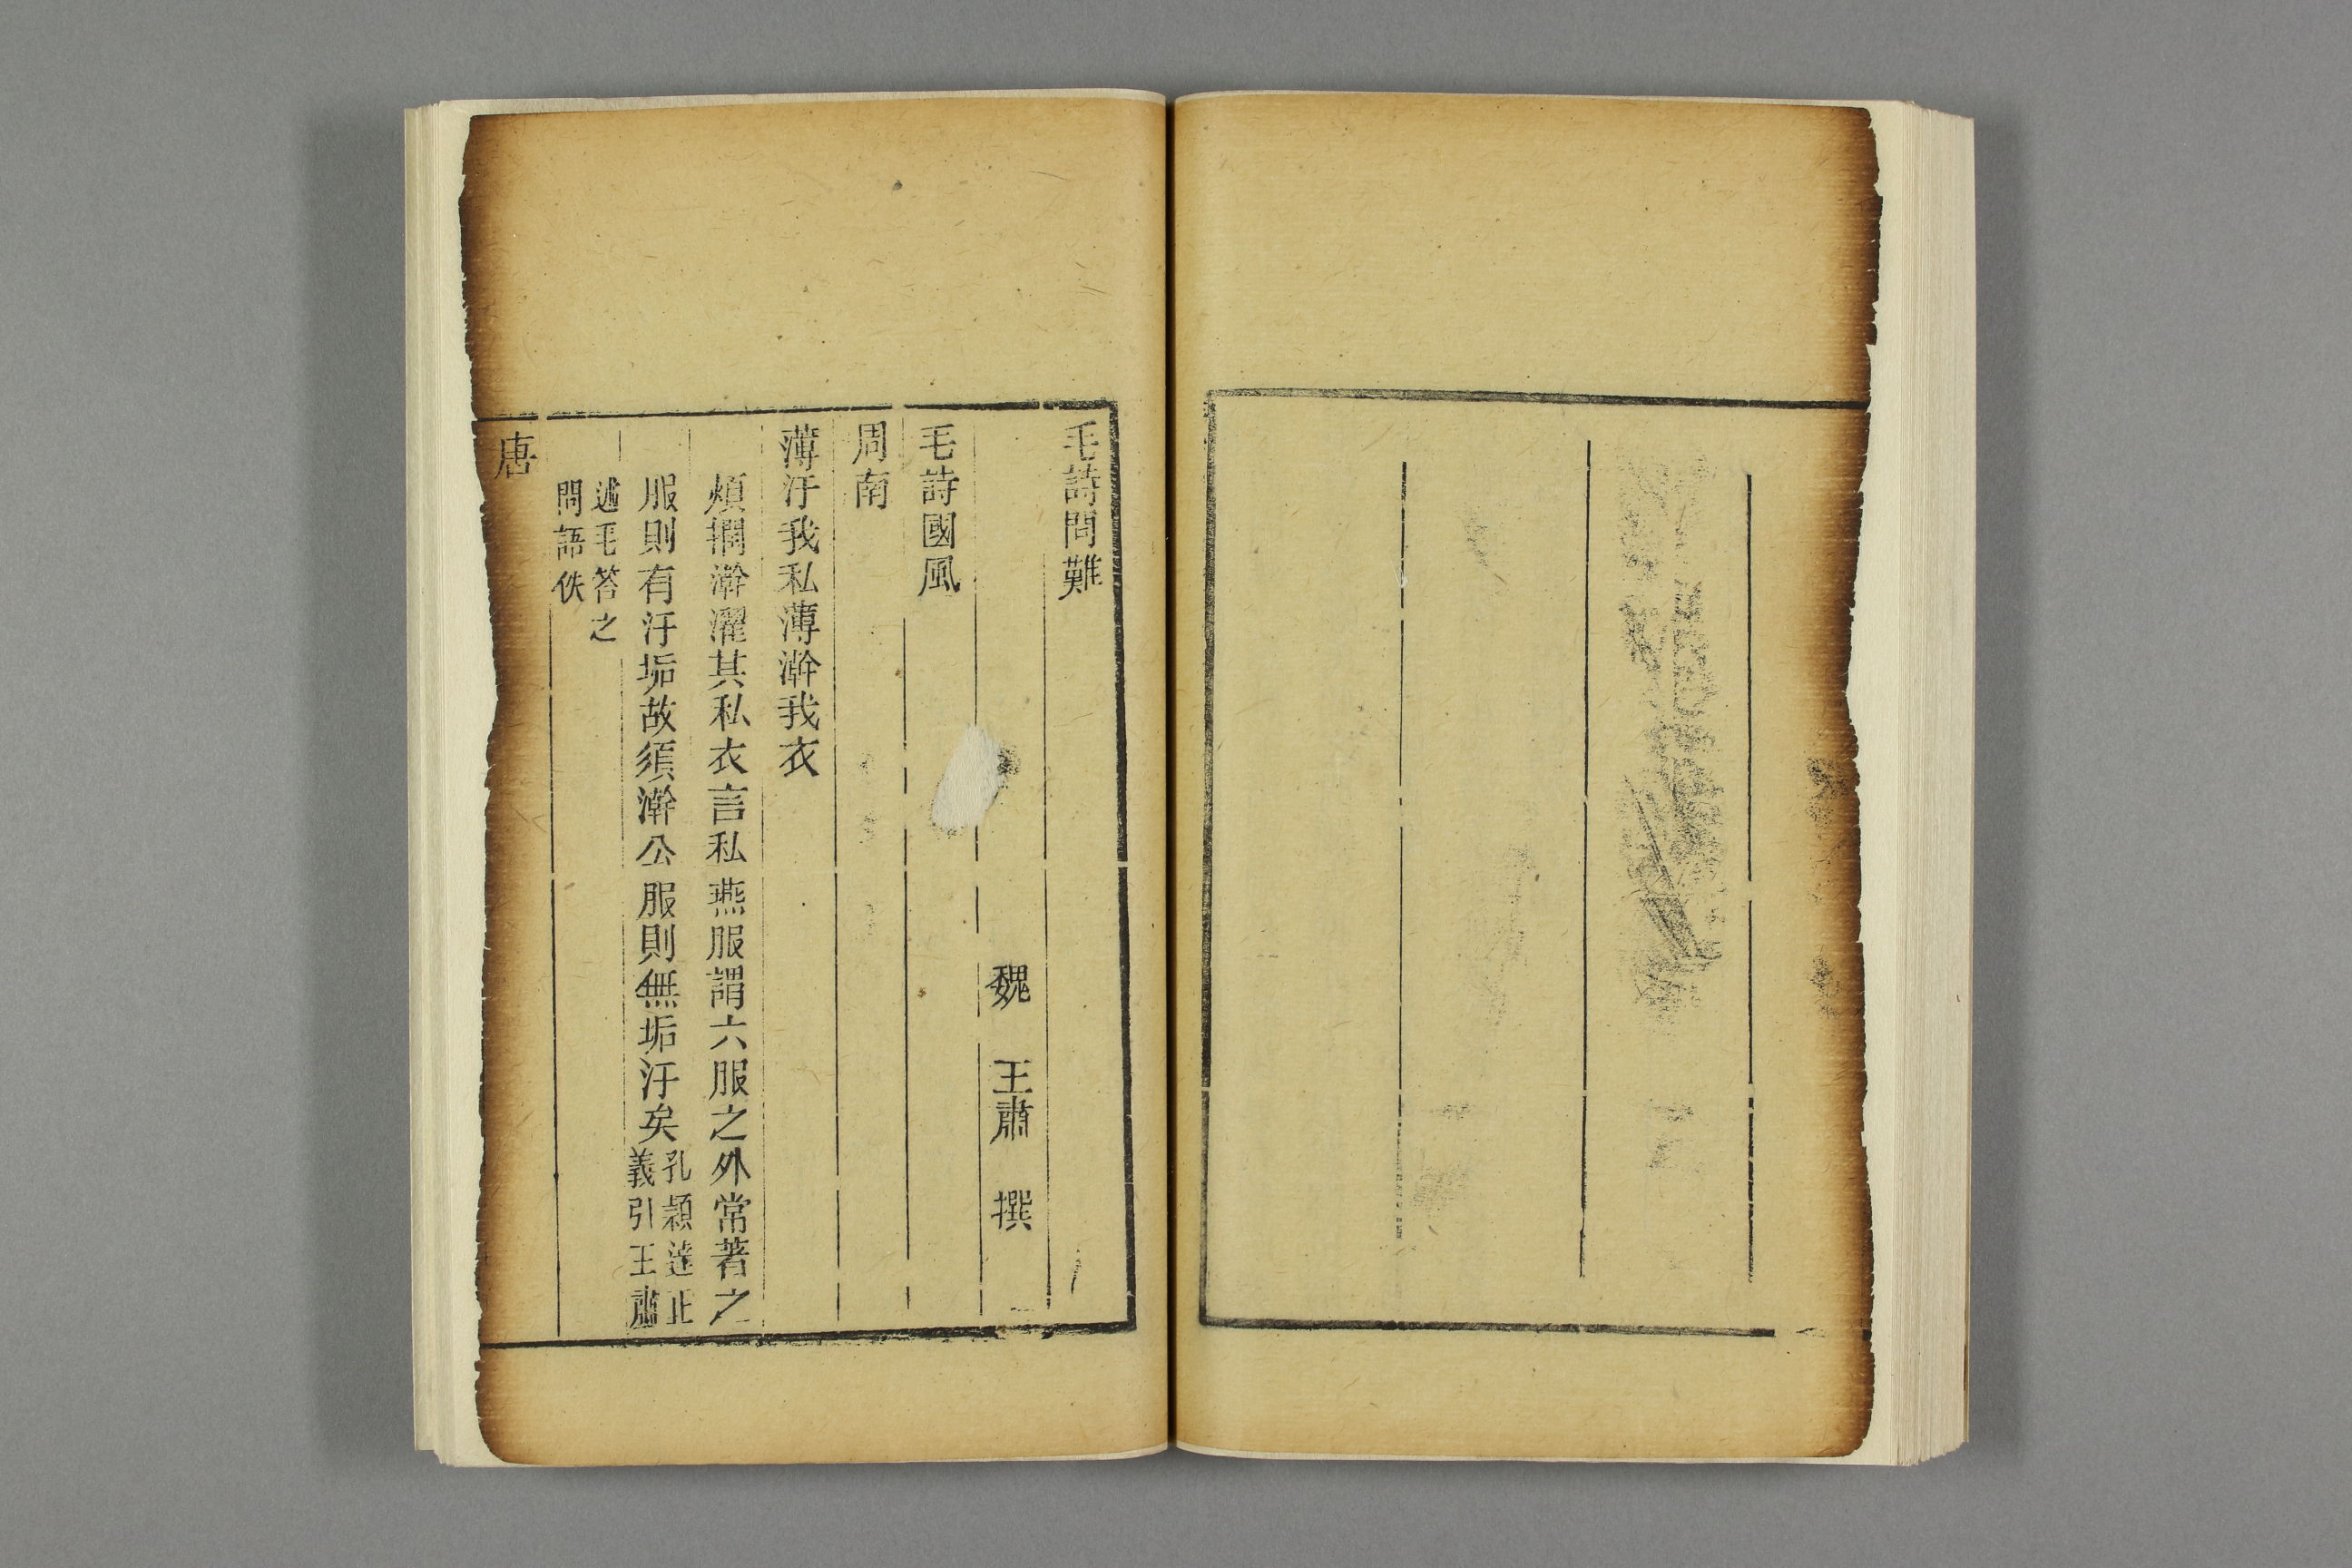 毛詩問難
魏 王肅 撰
毛詩國風
周南
薄汙我私薄澣我衣
煩撋澣濯其私衣言私燕服謂六服之外常著之
服則有汙垢故須澣公服則無垢汙矣孔穎達正
義引王肅
述毛答之
問語佚
唐